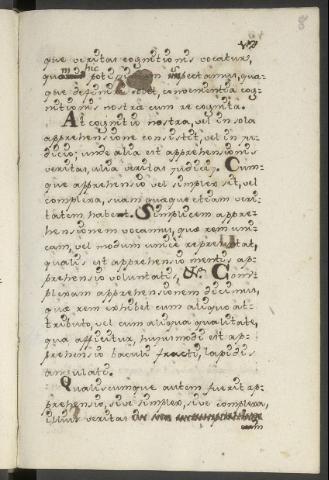 que veritas cognitionis vocatur,
hic
spectamus, quæ-
que definiri solet, convenientia cog-
nitionis nostræ cum re cognita.
At cognitio nostra, vel in sola
apprehensione consistit, vel in ju-
dicio; unde alia est apprehensionis
veritas, alia veritas judicij. Cum-
que apprehensio vel simplex sit, vel
complexa, suam quæque etiam veri-
tatem habent. Simplicem appre-
hensionem vocamus, quæ rem uni-
cam, vel modum unice repræsentat,
qualis est apprehensio mentis, ap-
prehensio voluntatis, &c. Com-
plexam apprehensionem dicimus,
quæ rem exhibet cum aliquo at-
tributo, vel cum aliqua qualitate,
qua afficitur, hujusmodi est ap-
prehensio baculi fracti, lapidis
angulati.
Qualiscumque autem fuerit ap-
prehensio, sive simplex, sive complexa,
illius veritas